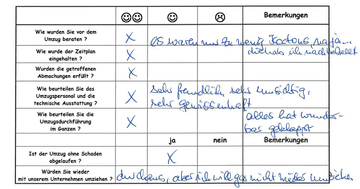 Bemerkungen
Wie wurden Sie vor dem
Umzug beraten ?
X
es waren nur zu wenig Kartons, na ja...
Wie wurde der Zeitplan
eingehalten ?
X
Wurden die getroffenen
Abmachungen erfüllt ?
X
Wie beurteilen Sie das
Umzugspersonal und die
technische Ausstattung ?
X
sehr freundlich, sehr umsichtig,
sehr gewissenhaft
Wie beurteilen Sie die
Umzugsdurchführung
im Ganzen ?
X
alles hat wunder-
bar geklappt
ja nein Bemerkungen
Ist der Umzug ohne Schaden
abgelaufen ?
X
Würden Sie wieder
mit unserem Unternehmen umziehen ?
durchaus, aber ich will gar nicht mehr umziehen